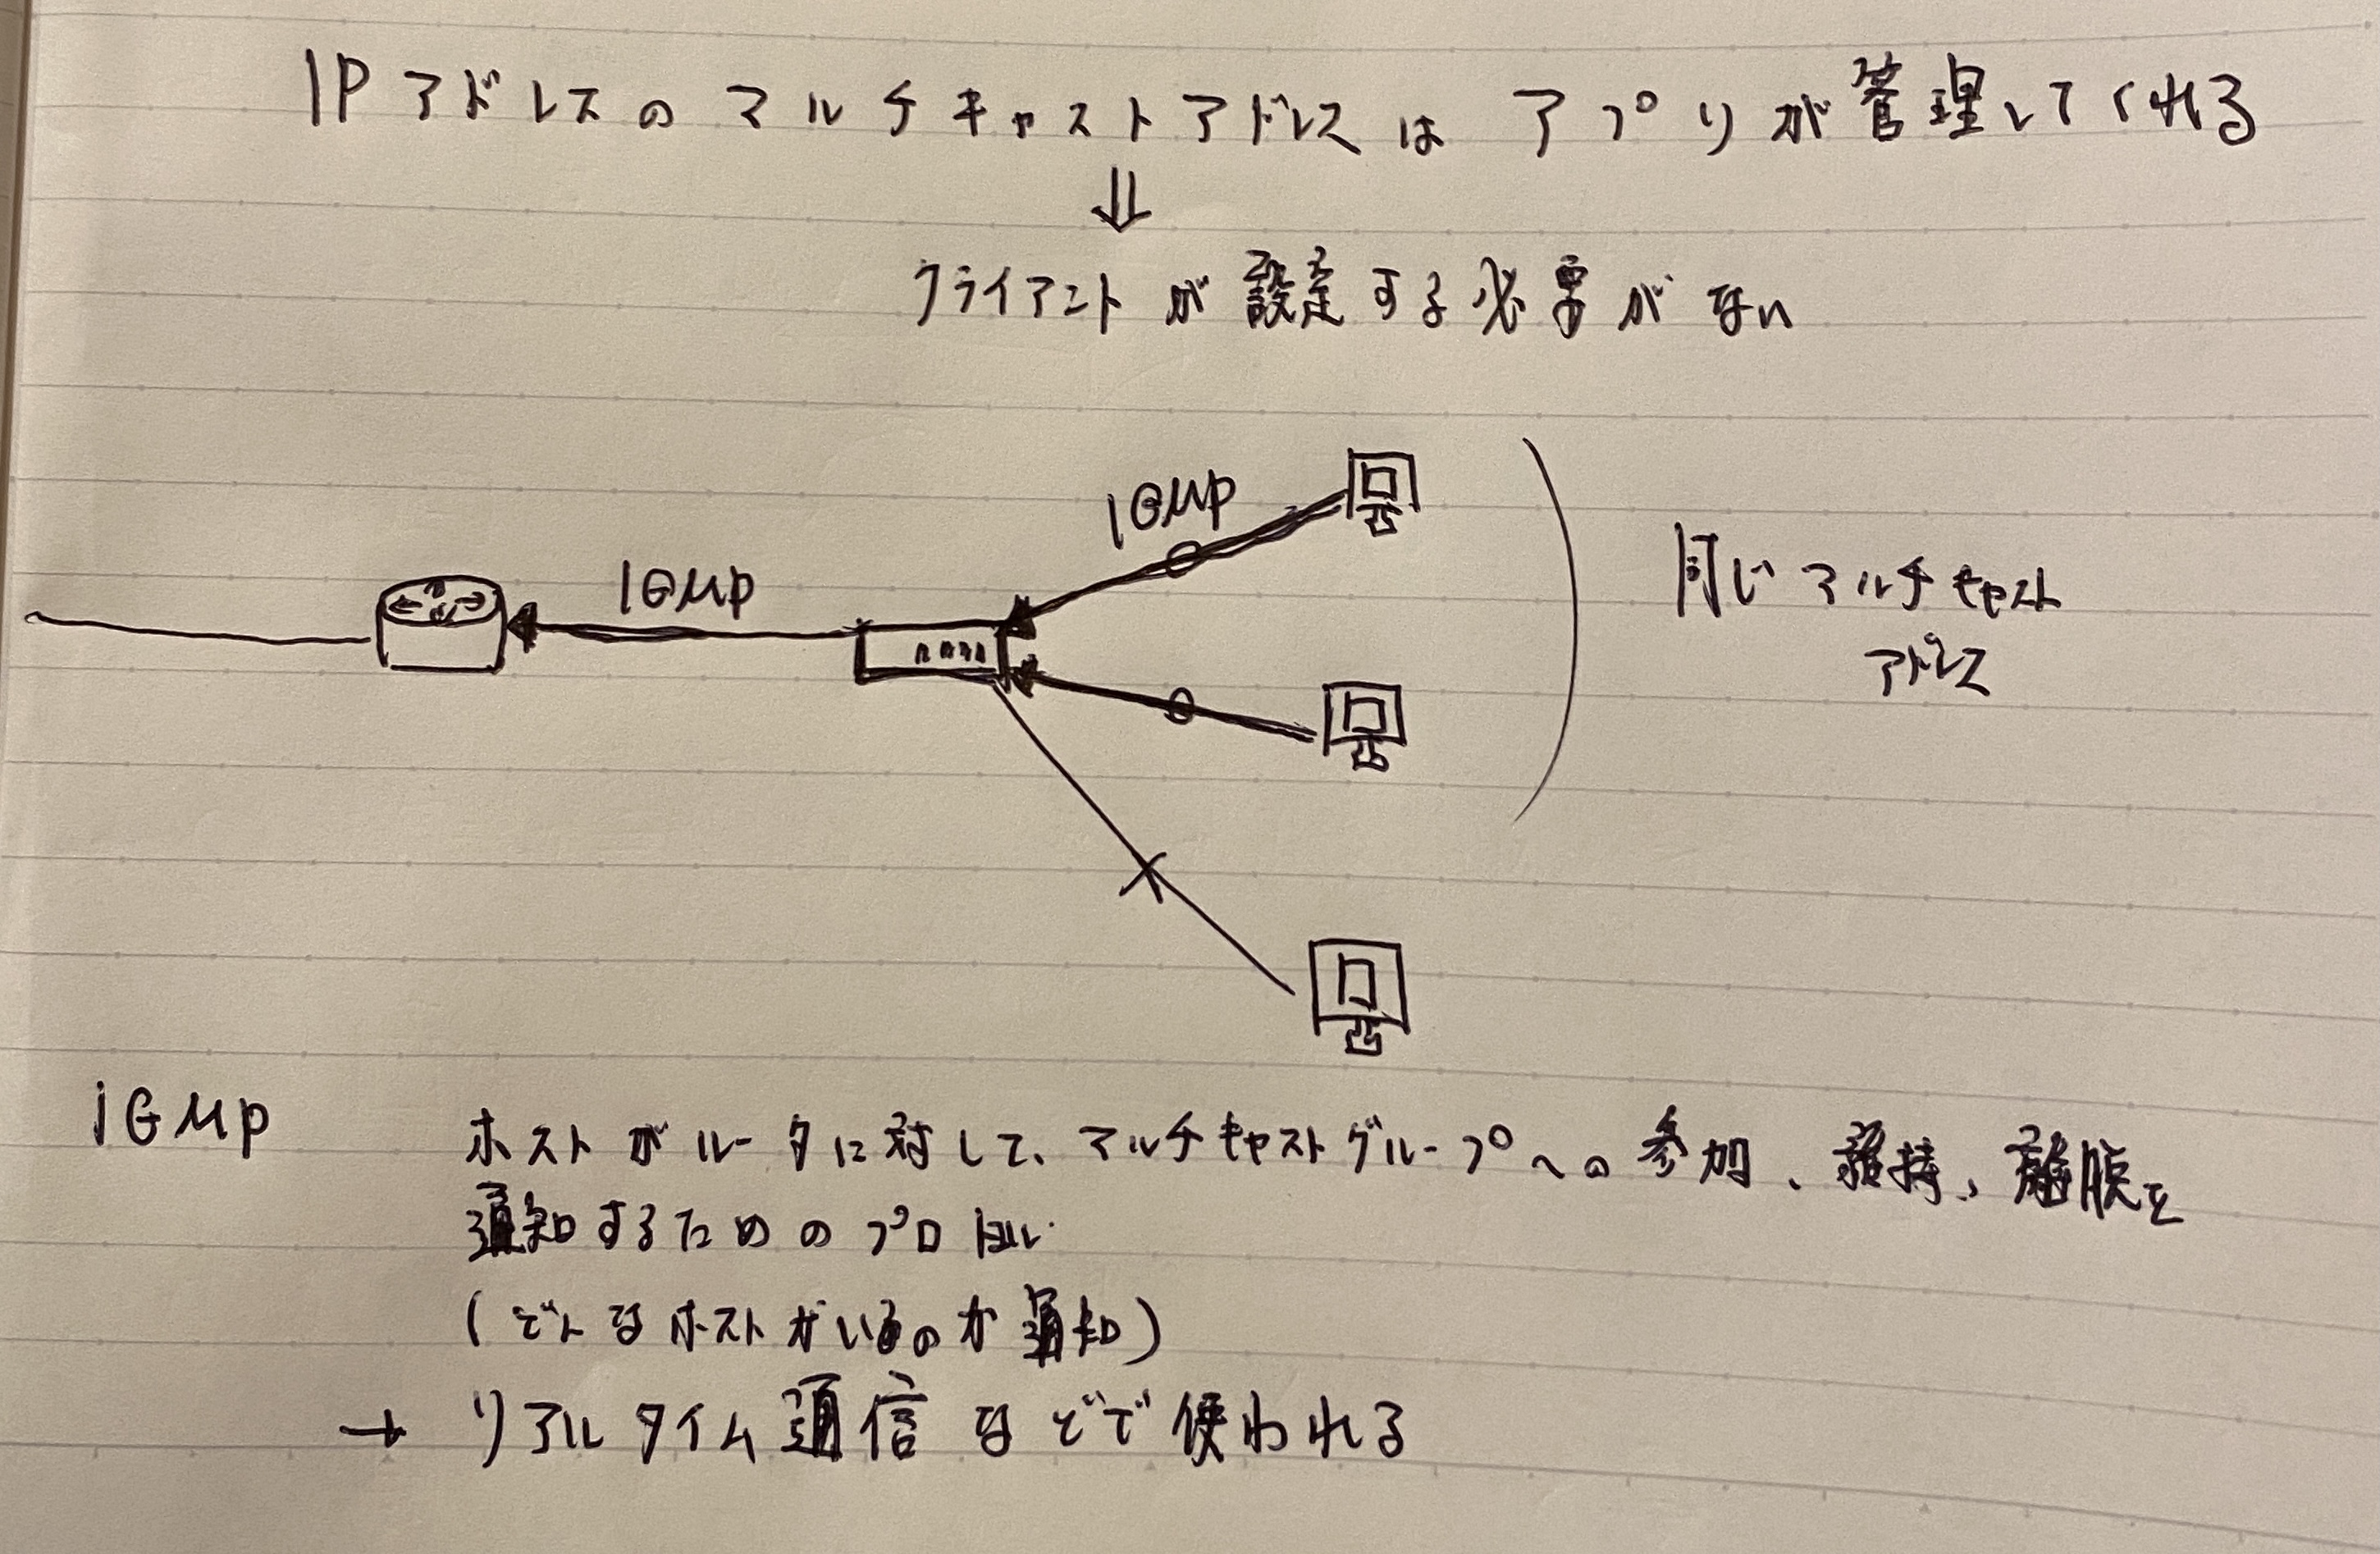 IPアドレスのマルチキャストアドレスはアプリが管理してくれる
⇓
クライアントが設定する必要がない
IGMP
IGMP
同じマルチキャスト
アドレス
IGMP ホストがルータに対して、マルチキャストグループへの参加、維持、離脱を
通知するためのプロトコル
(どんなホストがいるのか通知)
→ リアルタイム通信などで使われる